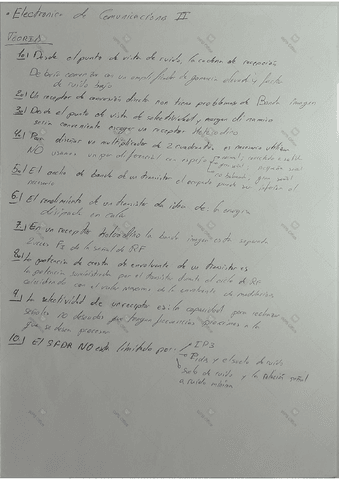 • Electrónica de Comunicaciones II
TEORIA
1.) Desde el punto de vista de ruido, la cadena de recepción
Debería comenzar con un amplificador de ganancia elevada y factor
de ruido bajo
2.) Un receptor de conversión directa non tiene problemas de Banda Imagen
3.) Desde el punto de vista de selectividad, y margen dinamico
sería conveniente escoger un receptor Heterodino
4.) Para diseñar un multiplicador de 2 cuadrantes, es necesario utilizar
NO usamos un par diferencial con espejo
5.) El ancho de banda de un transistor
6.) El rendimiento de un transistor da idea de la energia
disipada en calor
7.) En un receptor la banda imagen esta separada
2 veces de la señal de RF
8.) La potencia de cresta de envolvente de un transmisor es
la potencia suministrada por el transmisor durante un ciclo de RF
coincidiendo con el valor maximo de la envolvente de moduladora
9.) La selectividad de un receptor es la capacidad para rechazar
señales no deseadas que tengan frecuencias proximas a la
que se desea
10.) El SFDR NO está limitado por: IP3
y el suelo de ruido
suelo de ruido y la relación señal
a ruido mínima